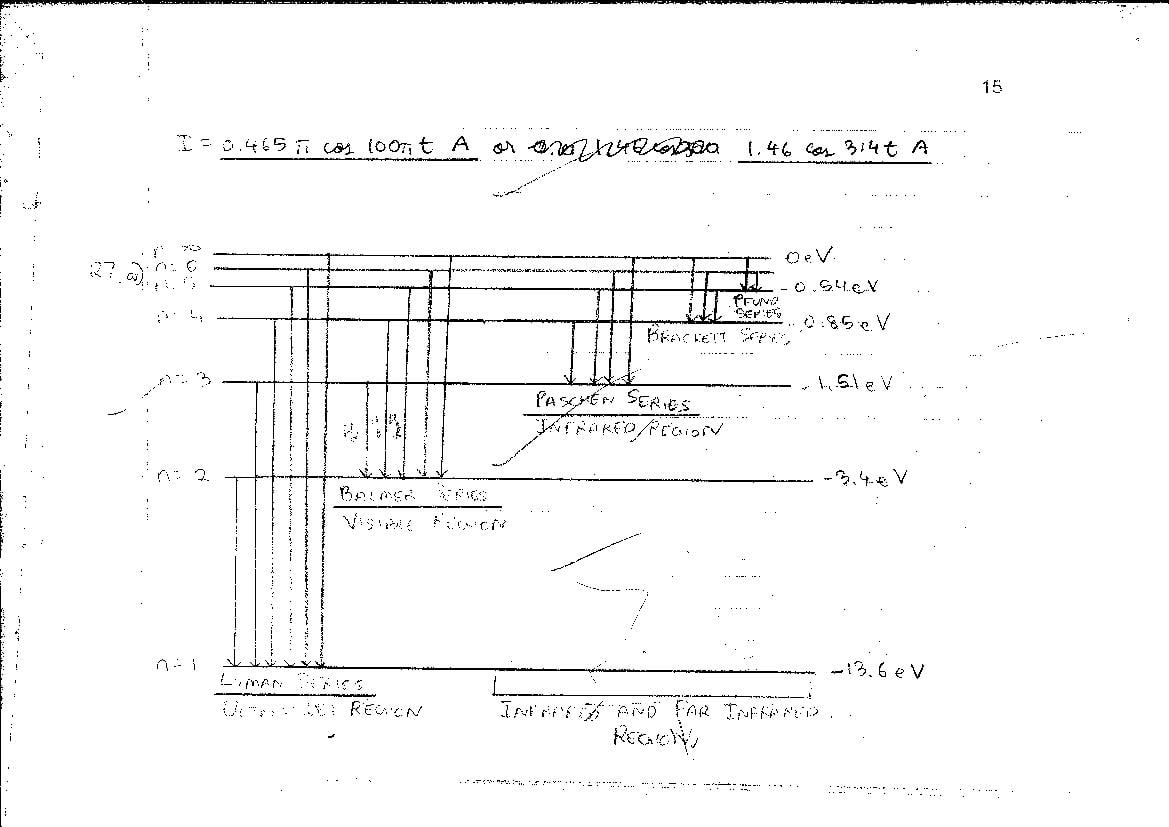 15
I = 0.465 π cos 100π t A or 1.46 cos 314 t A
n = ∞ 0 eV
27. a) n = 6
- 0.54 eV
PFUND
SERIES
n = 4 - 0.85 eV
BRACKETT SERIES
n = 3 - 1.51 eV
PASCHEN SERIES
INFRARED REGION
n = 2 -3.4 eV
BALMER SERIES
VISIBLE REGION
n = 1 -13.6 eV
LYMAN SERIES
ULTRAVIOLET REGION
INFRARED AND FAR INFRARED
REGION